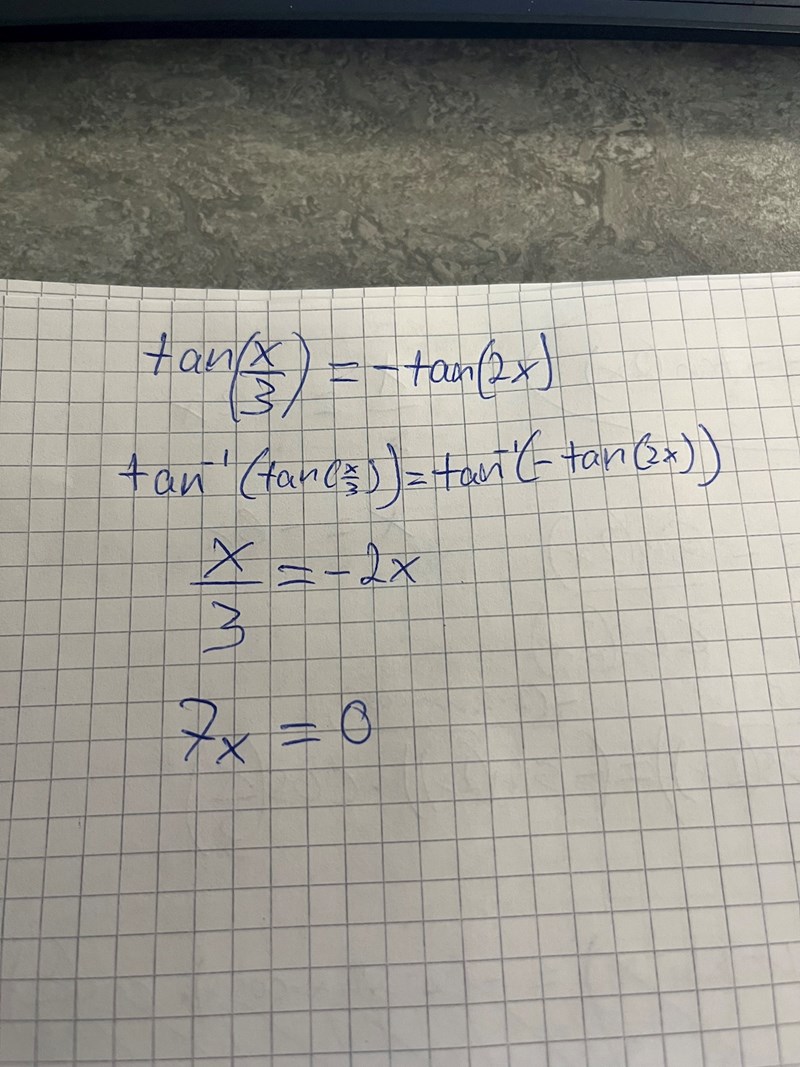 tan(x/3) = -tan(2x)
tan⁻¹(tan(x/3)) = tan⁻¹(-tan(2x))
x/3 = -2x
7x = 0